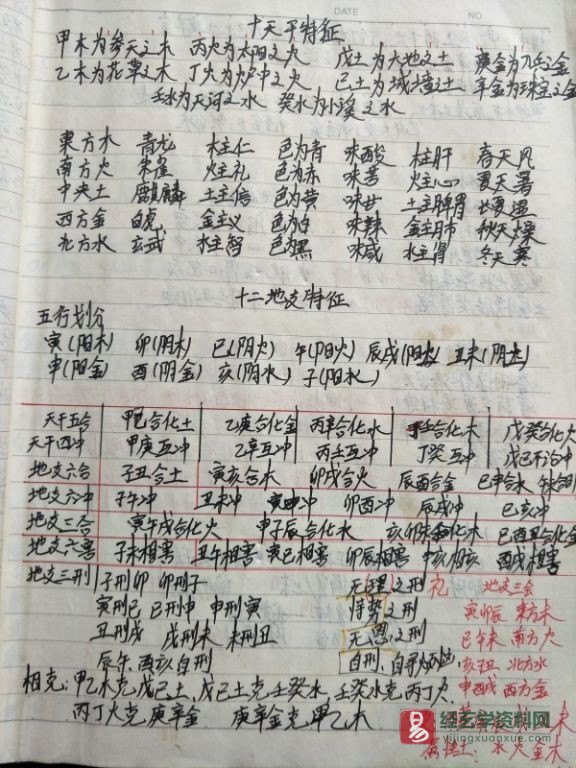 DATE NO.
十天干特征
甲木为参天之木 丙火为太阳之火 戊土为大地之土 庚金为刀兵之金
乙木为花草之木 丁火为炉中之火 己土为城墙之土 辛金为珠宝之金
壬水为天河之水 癸水为小溪之水
東方木 青龙 木主仁 色为青 味酸 木主肝 春天风
南方火 朱雀 火主礼 色为赤 味苦 火主心 夏天暑
中央土 麒麟 土主信 色为黄 味甘 土主脾胃 长夏湿
西方金 白虎 金主义 色为白 味辣 金主肺 秋天燥
北方水 玄武 水主智 色为黑 味咸 水主肾 冬天寒
十二地支特征
五行划分
寅(阳木) 卯(阴木) 巳(阴火) 午(阳火) 辰戌(阳土) 丑未(阴土)
申(阳金) 酉(阴金) 亥(阴水) 子(阳水)
天干五合 甲己合化土 乙庚合化金 丙辛合化水 壬合化木 戊癸合化火
天干四冲 甲庚互冲 乙辛互冲 丙壬互冲 丁癸互冲 戊己不论冲
地支六合 子丑合土 寅亥合木 卯戌合火 辰酉合金 巳申合水
地支六冲 子午冲 丑未冲 寅申冲 卯酉冲 辰戌冲 巳亥冲
地支三合 寅午戌合化火 申子辰合化水 亥卯未合化木 巳酉丑合化金
地支六害 子未相害 丑午相害 寅巳相害 卯辰相害 申亥相亥 酉戌相害
地支三刑 子刑卯 卯刑子 无理之刑 礼 地支三会
寅刑巳 巳刑申 申刑寅 恃势之刑 寅卯辰 東方木
丑刑戌 戌刑未 未刑丑 无恩之刑 巳午未 南方火
辰午酉亥自刑 自刑、自寻 亥子丑 北方水
申酉戌 西方金
相克:甲乙木克戊己土、戊己土克壬癸水、壬癸水克丙丁火
丙丁火克庚辛金 庚辛金克甲乙木
土:水火金木
易 经玄学资料网
yijingxuanxue.com